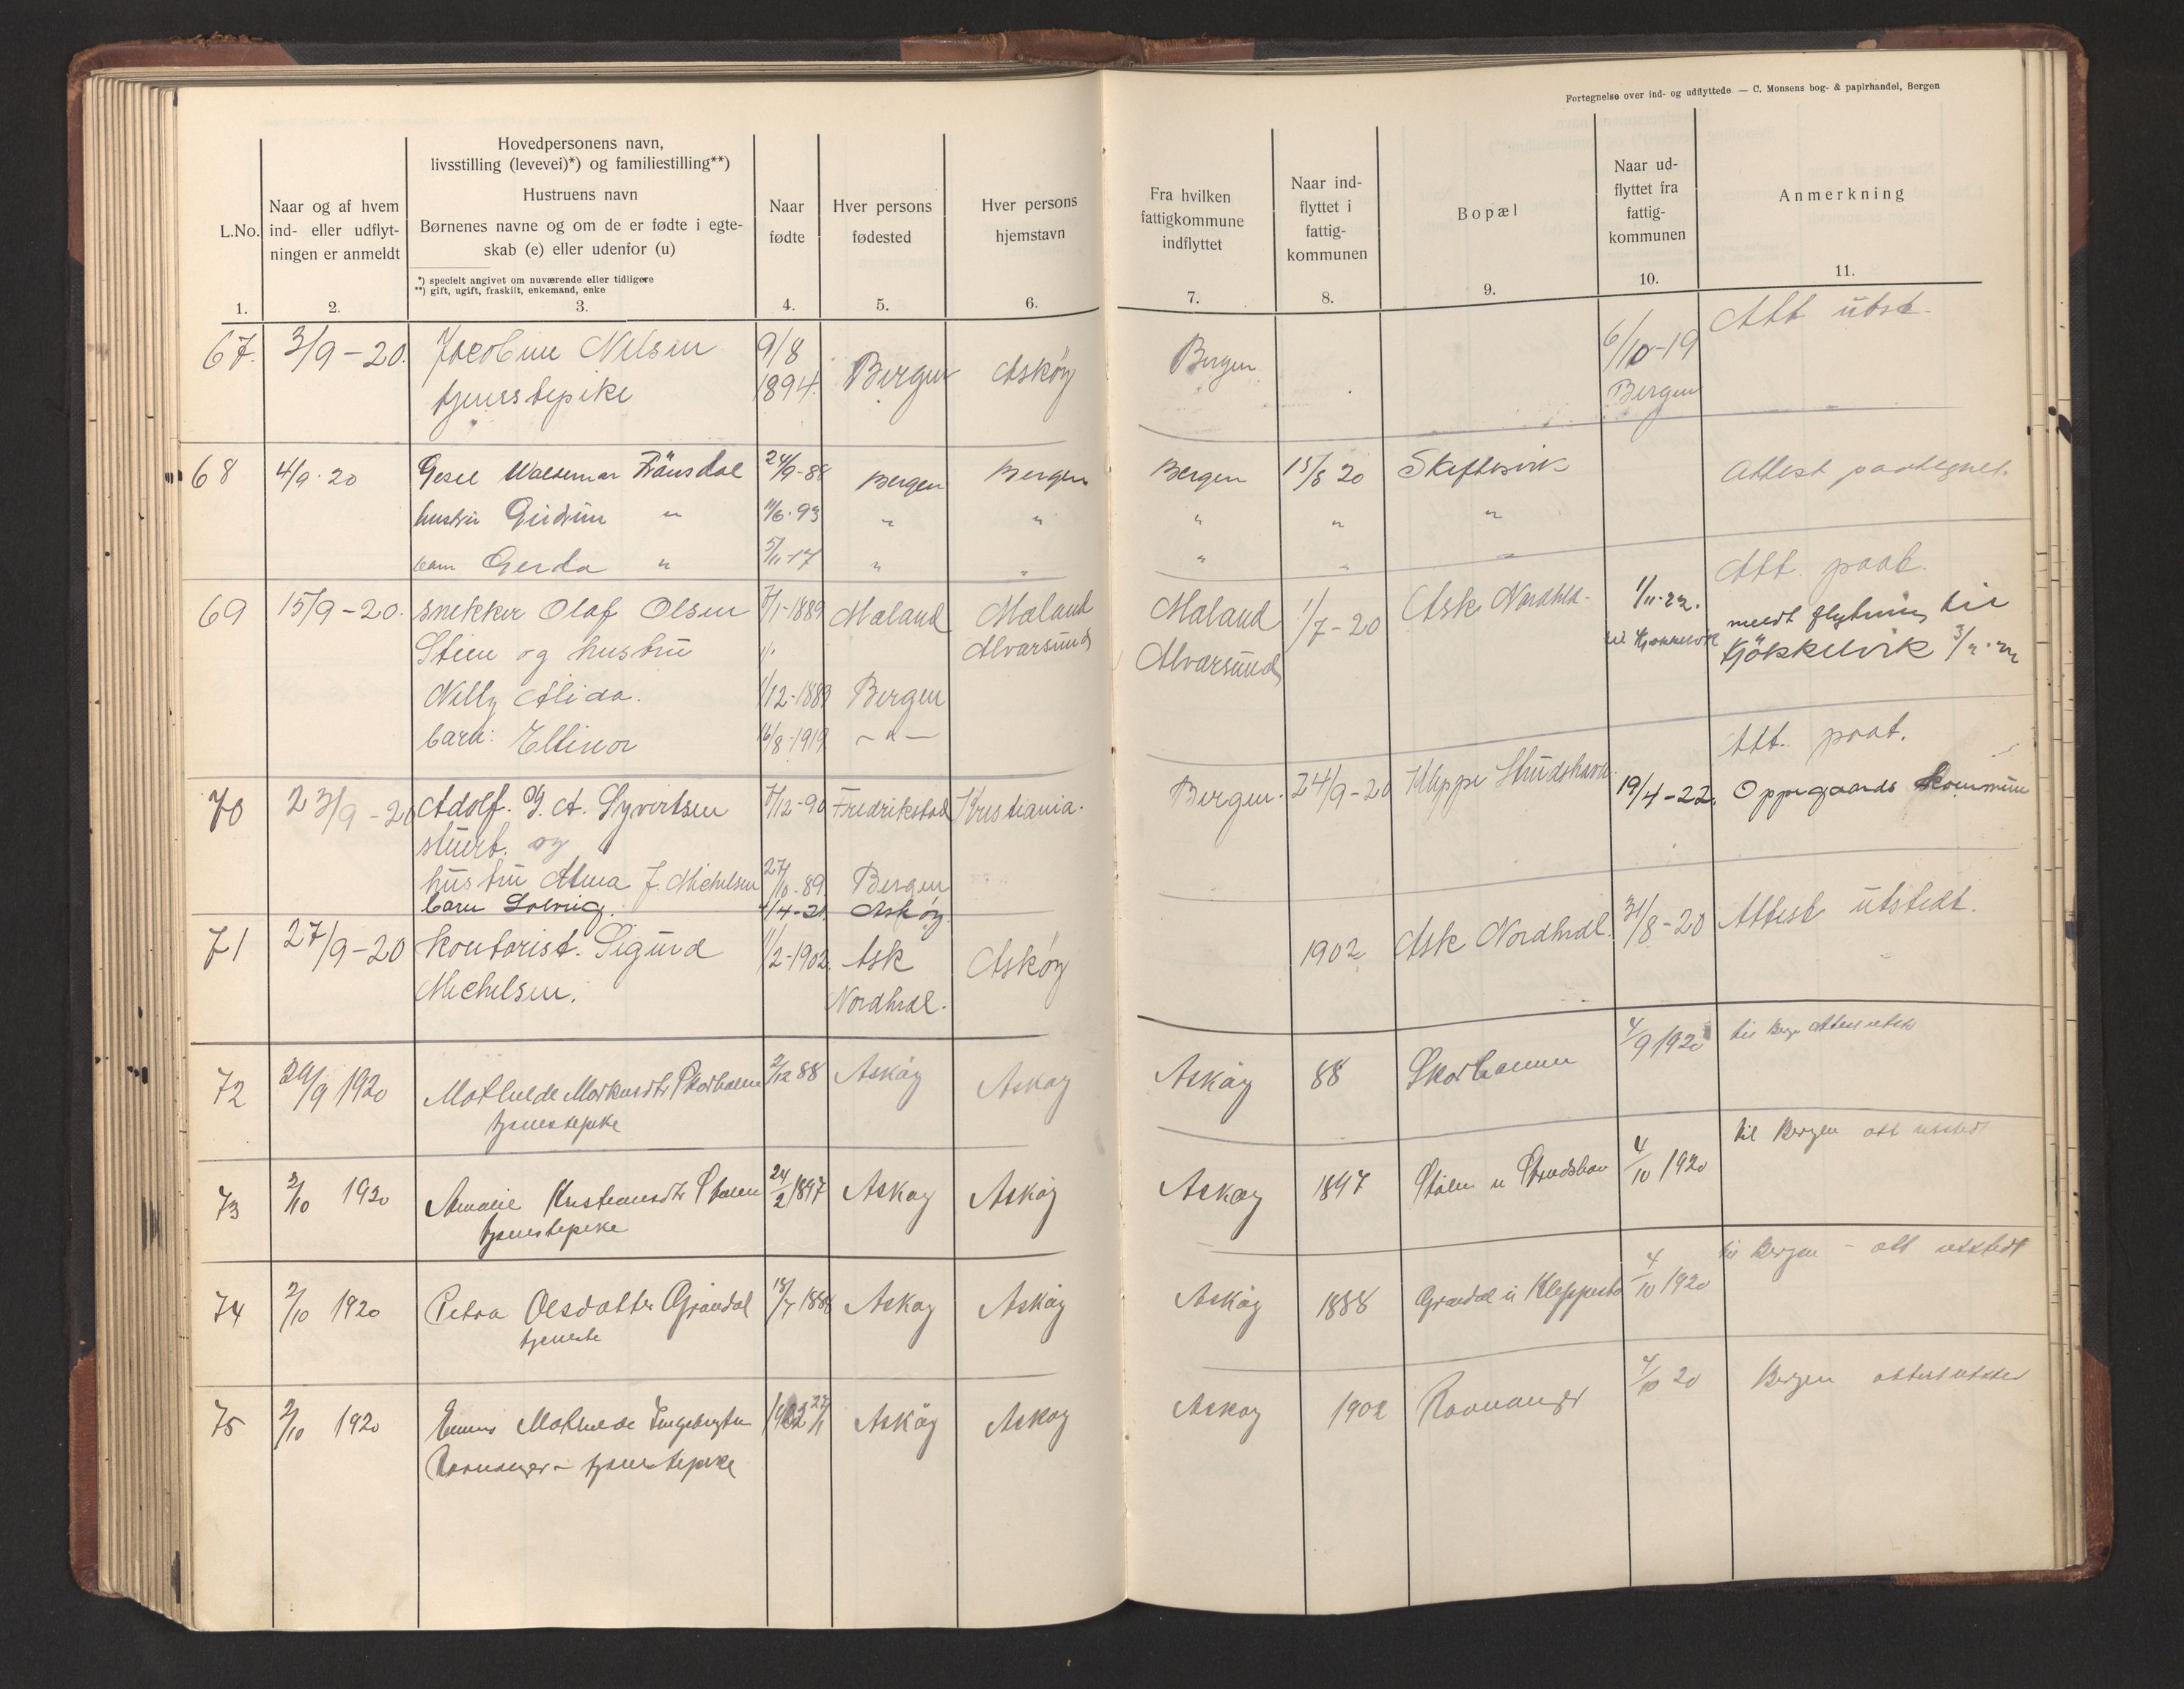 Fortegnelse over ind- og udflyttede. — C. Monsens bog- & papirhandel, Bergen
L.No.
1.
Naar og af hvem
ind- eller udflyt-
ningen er anmeldt
2.
Hovedpersonens navn,
livsstilling (levevei)*) og familiestilling**)
Hustruens navn
Børnenes navne og om de er fødte i egte-
skab (e) eller udenfor (u)
*) specielt angivet om nuværende eller tidligere
**) gift, ugift, fraskilt, enkemand, enke
3.
Naar
fødte
4.
Hver persons
fødested
5.
Hver persons
hjemstavn
6.
Fra hvilken
fattigkommune
indflyttet
7.
Naar ind-
flyttet i
fattig-
kommunen
8.
Bopæl
9.
Naar ud-
flyttet fra
fattig-
kommunen
10.
Anmerkning
11.
67. 3/9-20. Jacobine Nilsen 9/8 1894. Bergen Askøy Bergen 6/10-19 Bergen Att utst.
tjenestepike
68 4/9·20 Waldemar 24/9-88 Bergen Bergen Bergen 15/8 20 Skiftesvik Attest paategnet.
hustru Gudrun " 11/6·93 " " " " "
barn Gerda " 5/11-17 " " " " "
69 15/9-20. snekker Olaf Olsen 7/1-1889 Mæland Mæland Mæland 1/7-20 Ask Nordhld. 1/11-22. Att. paat.
Steen og hustru Alvarsund Alvarsund meldt flytning til
Kjøkkelvik
Nelly Alida. 1/12-1889 Bergen
barn: Ellinor 16/8-1919 -"-
70 23/9-20 Adolf. G. A. Syvertsen 7/12-90 Fredrikstad Kristiania. Bergen. 24/9-20 Kleppe Strudshavn. 19/4-22. Att. paat.
Oppegaards kommune
stuert. og
hustru Alma J. Michelsen 27/10-89 Bergen
barn Solveig. 4/4-21 Askøy.
71 27/9-20 kontorist. Sigurd 11/2-1902. Ask Askøy 1902 Ask Nordhrdl. 31/8-20 Attest utstedt.
Michelsen. Nordhrdl.
72 29/9 1920 Mathilde Markusdtr Skarholmen 2/12 88 Askøy Askøy Askøy 88 4/9 1920 til
tjenestepike
73 2/10 1920 Amalie Kristiansdtr Stølen 24/2 1897 Askøy Askøy Askøy 1897 Stølen u Strudshavn 4/10 1920 til Bergen att utstedt
tjenestepike
74 2/10 1920 Petra Olsdatter Grøndal 18/7 1888 Askøy Askøy Askøy 1888 Grøndal u Kleppestø 4/10 1920 til Bergen - att utstedt
tjeneste
75 2/10 1920 Emma Mathilde 1902 Askøy Askøy Askøy 1902 Ravnanger 4/10 20 Bergen
Ravnanger - tjenestepike